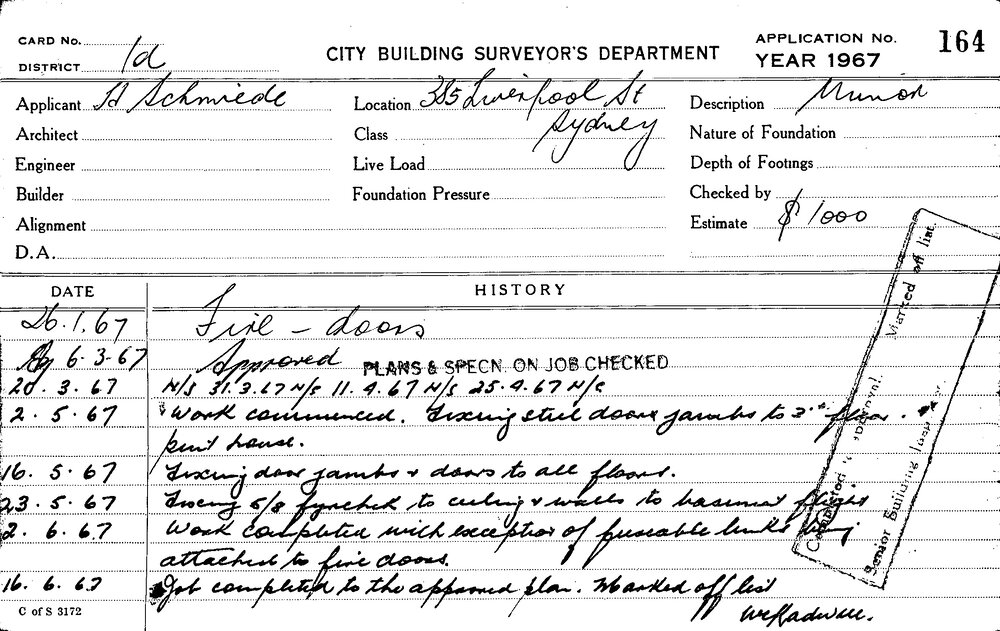 CARD No.
DISTRICT 1d
CITY BUILDING SURVEYOR'S DEPARTMENT
APPLICATION No. 164
YEAR 1967
Applicant A Schmiede
Location 385 Liverpool St
Sydney
Description Minor
Architect
Class
Nature of Foundation
Engineer
Live Load
Depth of Footings
Builder
Foundation Pressure
Checked by
Alignment
Estimate $1000
D.A.
DATE HISTORY
26.1.67 Fire - doors
6.3.67 Approved PLANS & SPECN. ON JOB CHECKED
20.3.67 N/S 31.3.67 N/S 11.4.67 N/S 25.4.67 N/S
2.5.67 Work commenced. Fixing steel doors jambs to 3rd floor.
pent house.
16.5.67 Fixing door jambs & doors to all floors.
23.5.67 Fixing 5/8 fyrchek to ceiling & walls to basement flight
2.6.67 Work completed with exception of fuseable links being
attached to fire doors.
16.6.67 Job completed to the approved plan. Marked off list
Completed approval.
Marked off list.
Senior Building
C of S 3172